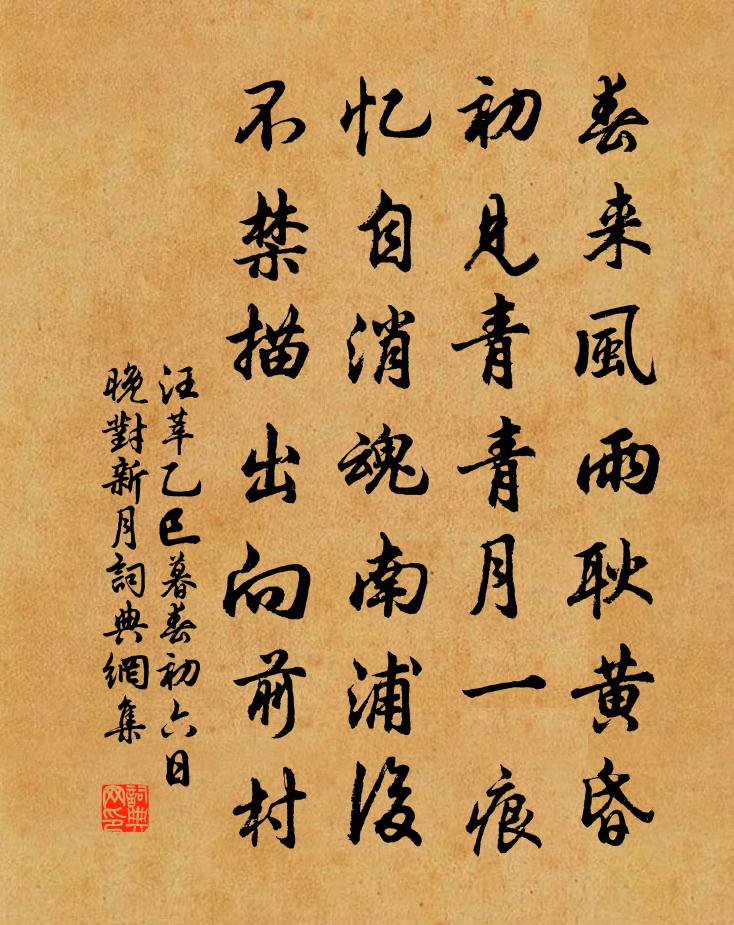 春来風雨耿黄昏
初見青青月一痕
忆自消魂南浦後
不禁描出向前村
汪莘乙巳暮春初六日
晚對新月詞典網集
詞典網印